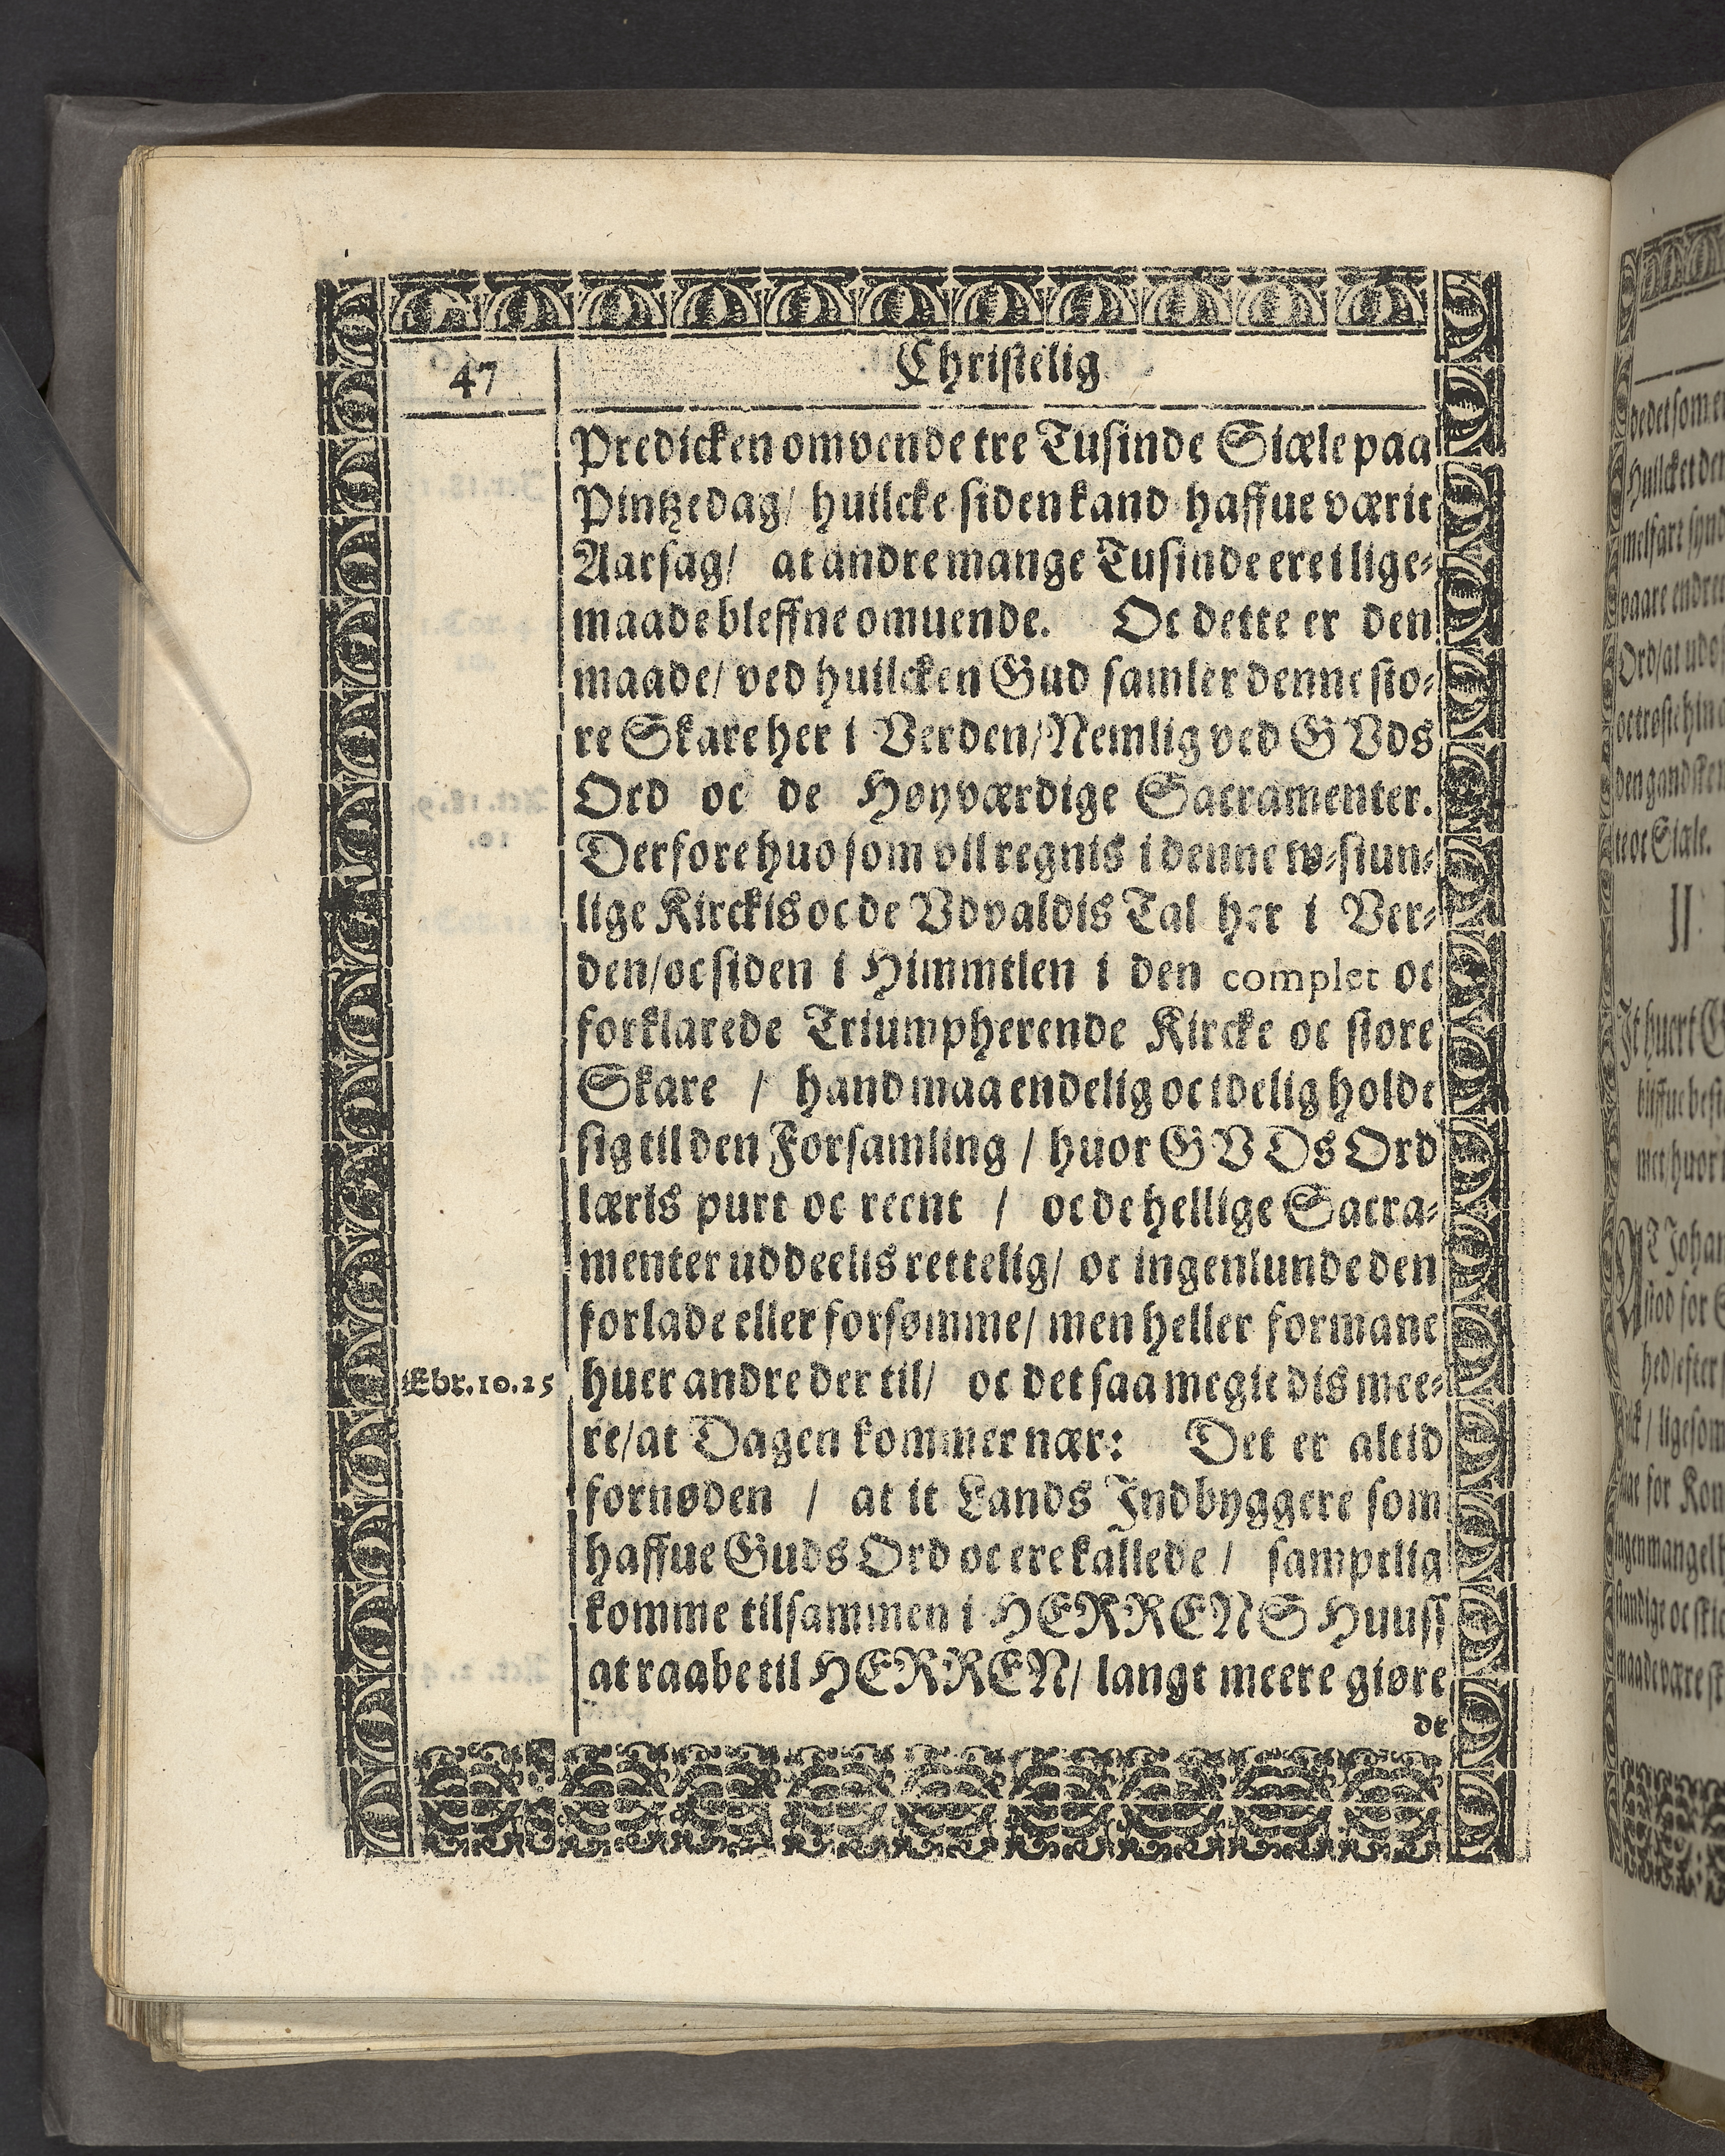 47
Christelig
Predicken omvende tre Tusinde Siæle paa
Pintzedag/ huilcke siden kand haffue værit
Aarsag/ at andre mange Tusinde ere i lige-
maade bleffne omuende. Oc dette er den
maade/ ved huilcken Gud samler denne sto-
re Skare her i Verden/ Nemlig ved GVds
Ord oc de Høyværdige Sacramenter.
Derfore huo som vil regnis i denne tw-stun-
lige Kirckis oc de Vdvaldis Tal her i Ver-
den/ oc siden i Himmelen i den complet oc
forklarede Triumpherende Kircke oc store
Skare / hand maa endelig oc idelig holde
sig til den Forsamling / huor GVDs Ord
læris purt oc reent / oc de hellige Sacra-
menter uddeelis rettelig/ oc ingenlunde den
forlade eller forsømme/ men heller formane
Ebr.10.25
huer andre der til/ oc det saa megit dis mee-
re/ at Dagen kommer nær: Det er altid
fornøden / at it Lands Indbyggere som
haffue Guds Ord oc ere kallede / samptlig
komme tilsammen i HERRENS Huuss
at raabe til HERREN/ langt meere giøre
de